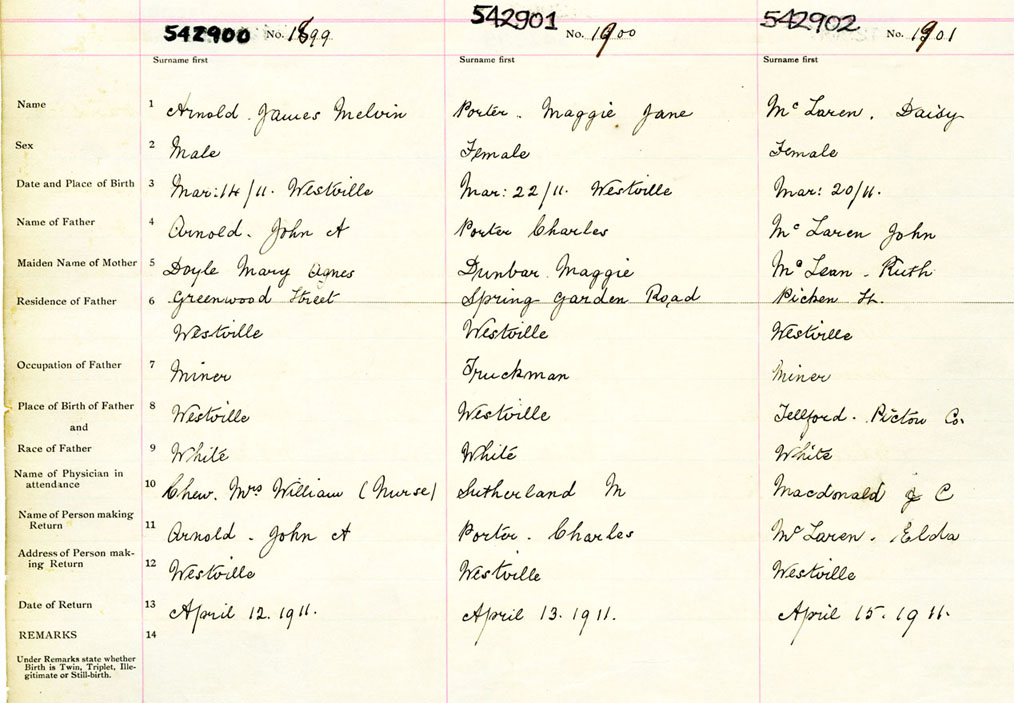 542900 No. 1899 542901 No. 1900 542902 No. 1901
Surname first Surname first Surname first
Name 1 Arnold. James Melvin Porter. Maggie Jane McLaren. Daisy
Sex 2 Male Female Female
Date and Place of Birth 3 Mar: 14/11. Westville Mar: 22/11. Westville Mar: 20/11.
Name of Father 4 Arnold. John A Porter Charles McLaren John
Maiden Name of Mother 5 Doyle Mary Agnes Dunbar Maggie McLean. Ruth
Residence of Father 6 Greenwood Street Spring Garden Road Picken St.
Westville Westville Westville
Occupation of Father 7 Miner Truckman Miner
Place of Birth of Father 8 Westville Westville Tellford. Pictou Co.
and
Race of Father 9 White White White
Name of Physician in
attendance 10 Chew. Mrs William (Nurse) Sutherland M Macdonald J C
Name of Person making
Return 11 Arnold. John A Porter. Charles McLaren. Elda
Address of Person mak-
ing Return 12 Westville Westville Westville
Date of Return 13 April 12. 1911. April 13. 1911. April 15. 1911.
REMARKS 14
Under Remarks state whether
Birth is Twin, Triplet, Ille-
gitimate or Still-birth.